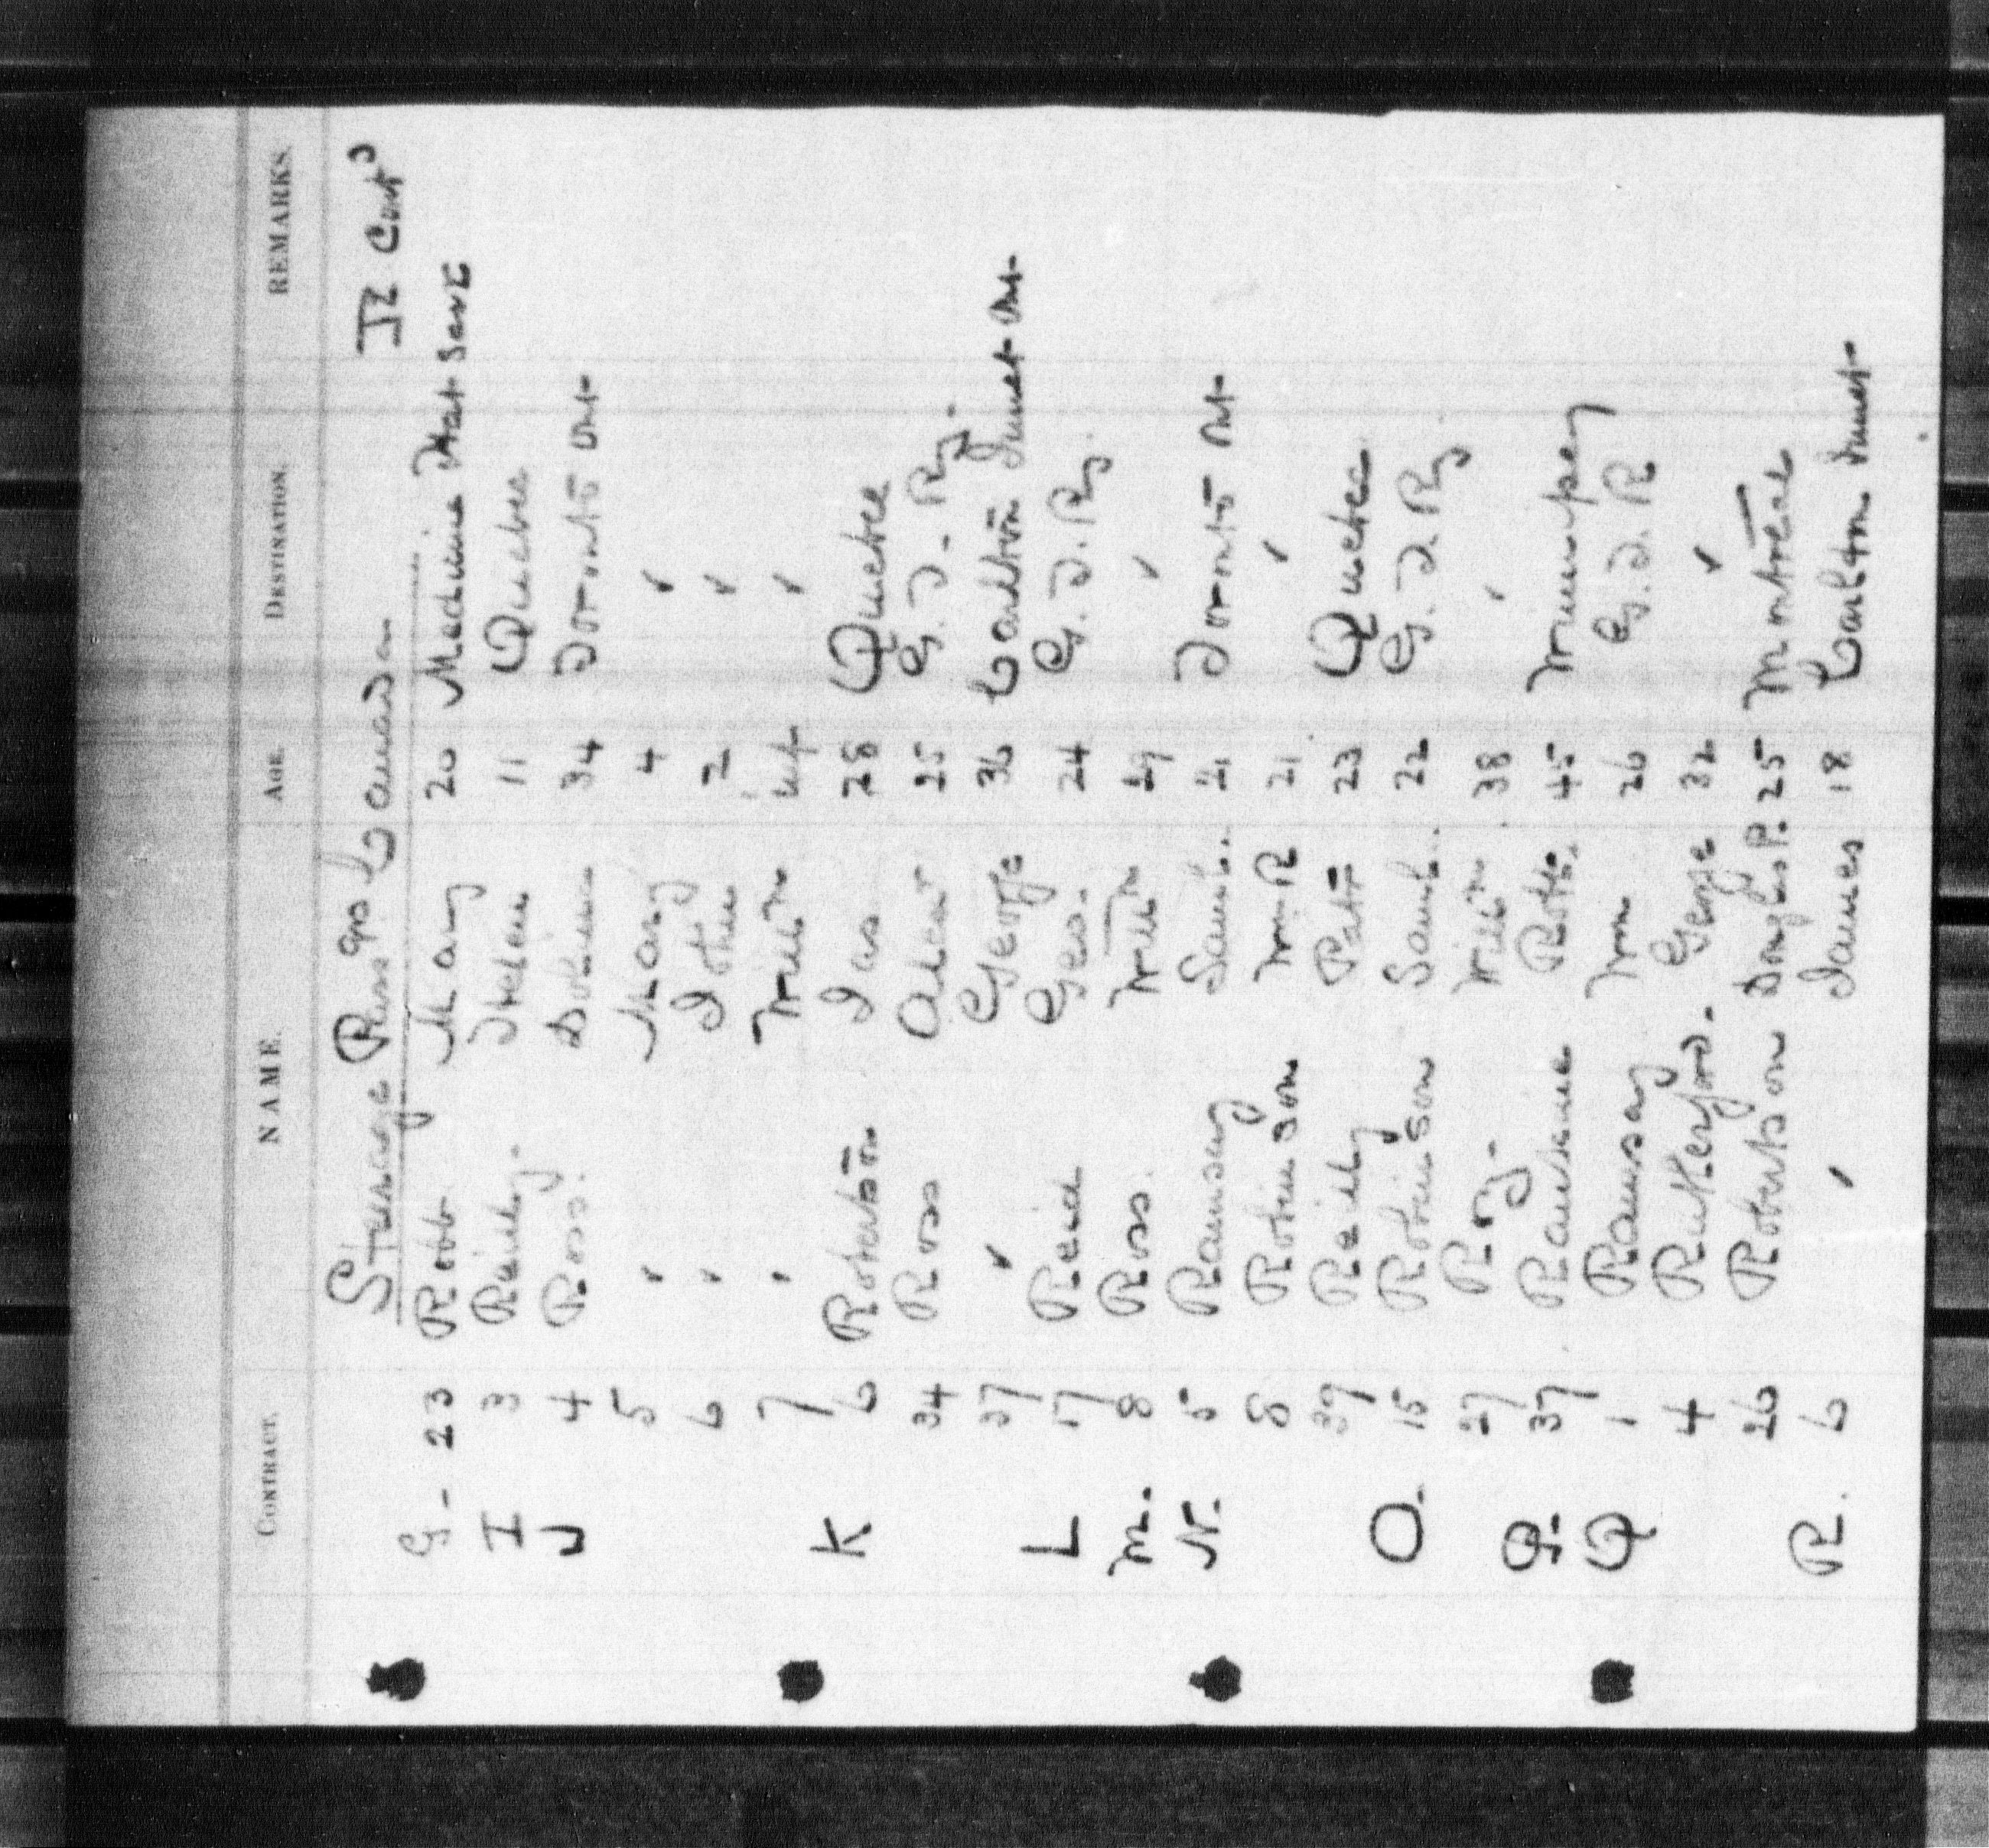 CONTRACT. NAME. AGE. DESTINATION. REMARKS.
Steerage Canada
G- 23 Robb Mary 20 Medicine Hat
I 3 Reilly Helen 11 Quebec
J 4 Ross. 34 Toronto Ont
5 " Mary 4 "
6 " 2 "
7 " Willm Inf "
K 6 Robertson Jas 28 Quebec
34 Ross 25 G. T. Ry.
37 " George 36 Carlton Ont
L 17 Reid Geo. 24 G. T. Ry.
M. 8 Ross. Willm 29 "
N. 5 Ramsay Saml. 21 Toronto Ont
8 Robinson Wm R 21 "
39 Reilly Patk 23 Quebec
O. 15 Robinson Saml. 22 G. T. Ry.
27 Roy. Willm 38 "
P. 37 Rankine Robt. 45 Winnipeg
Q 1 Ramsay Wm 26 G. T. R
4 Rutherford. George 32 "
26 Robertson Douglas P. 25 Montreal
R. 6 " James 18 Carlton